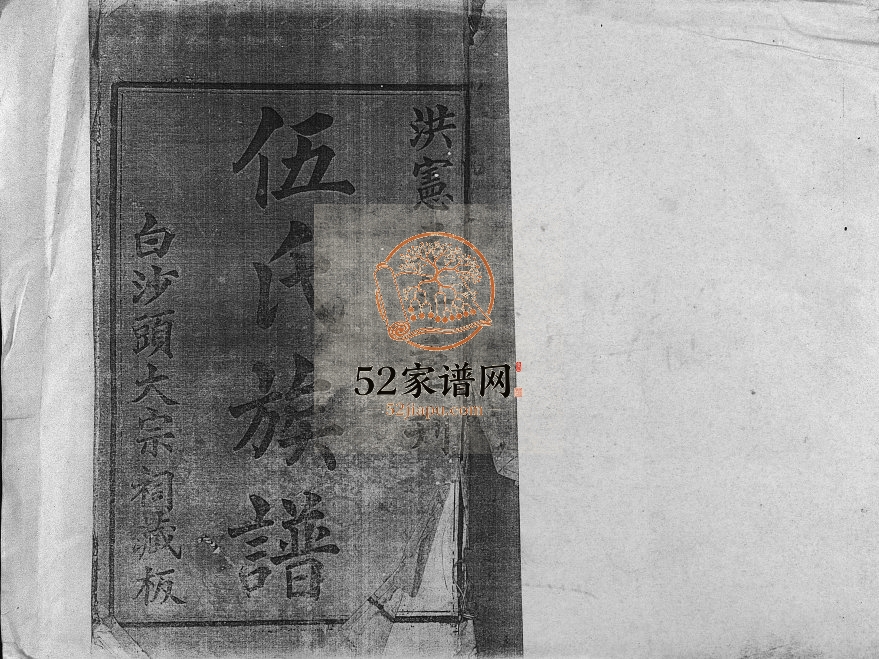 洪憲
刊
伍氏族譜
白沙頭大宗祠藏板
52家谱网